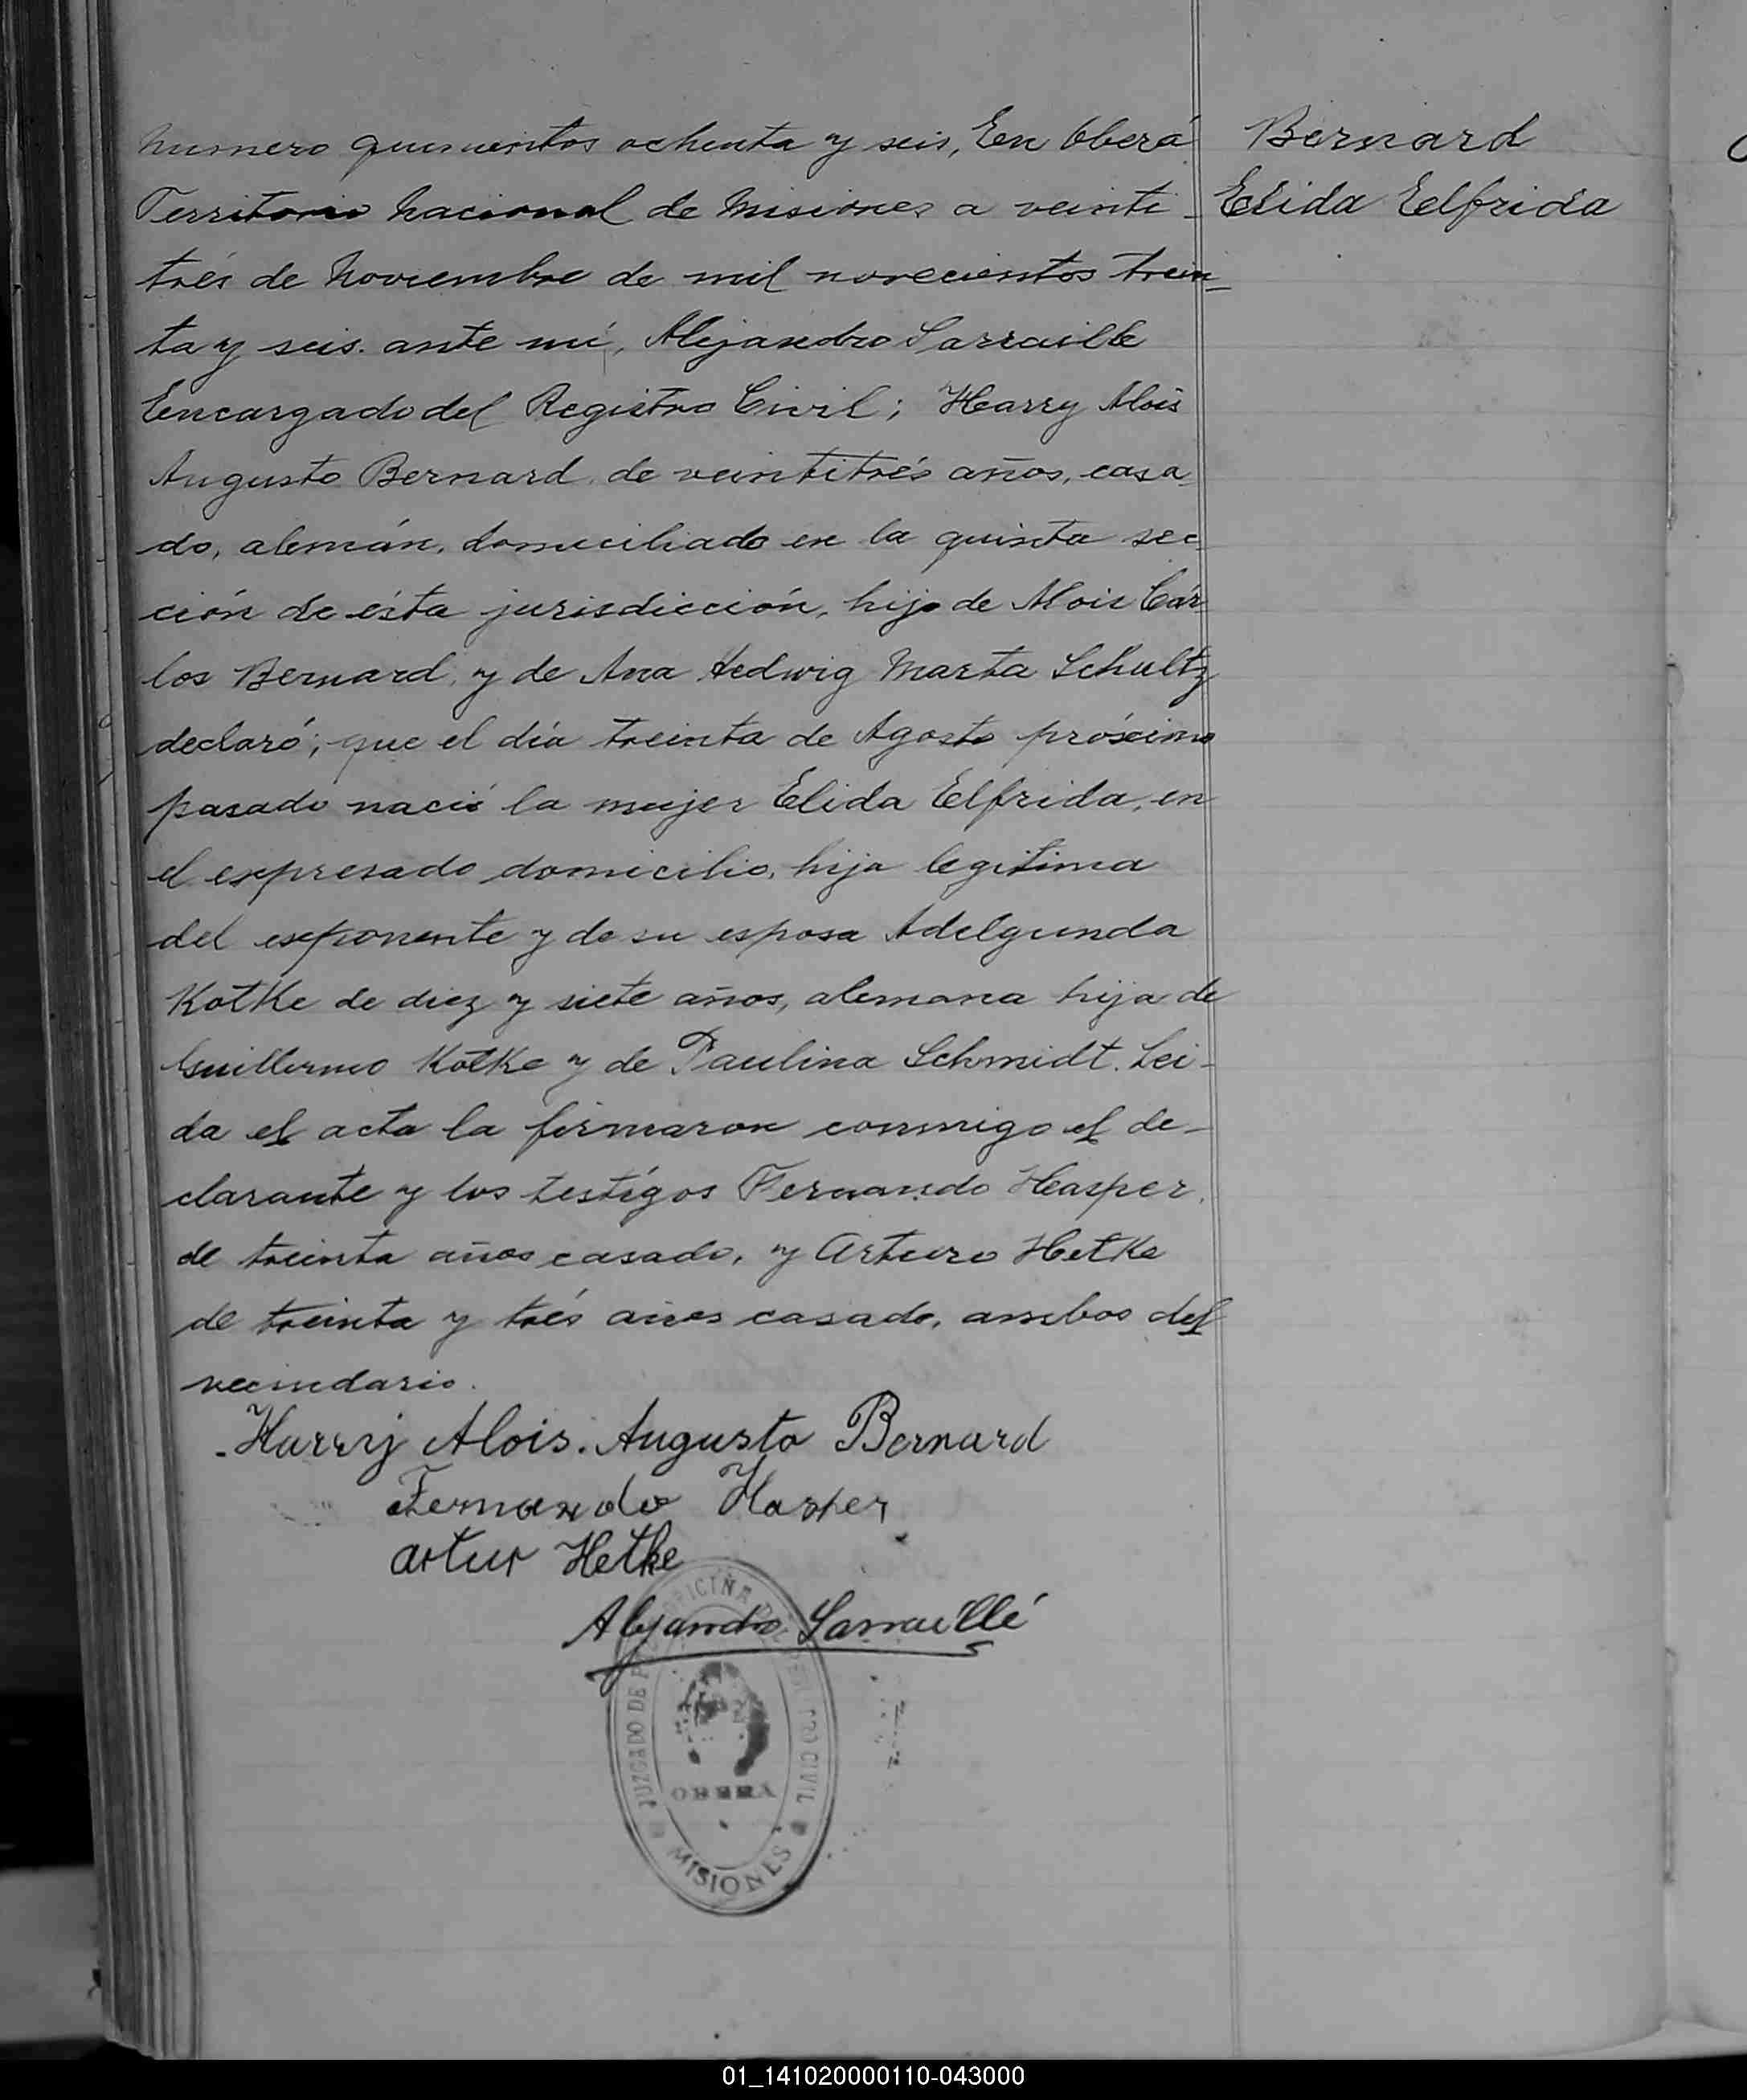 Numero quinientos ochenta y seis, En Oberá
Territorio Nacional de Misiones a veinti-
trés de Noviembre de mil novecientos trein-
ta y seis. ante mí, Alejandro Sarraille
Encargado del Registro Civil; Harry Alois
Augusto Bernard, de veintitrés años, casa-
do, alemán, domiciliado en la quinta sec-
ción de ésta jurisdicción, hijo de Alois Cár-
los Bernard, y de Ana Hedwig Marta Schultz
declaró; que el día treinta de Agosto próximo
pasado nació la mujer Elida Elfrida, en
el expresado domicilio, hija legitima
del exponente y de su esposa Adelgunda
Kotke de diez y siete años, alemana hija de
Guillermo Kotke y de Paulina Schmidt. Lei-
da el acta la firmaron conmigo el de-
clarante y los testígos Fernando Hasper,
de treinta años casado, y Arturo Hetke
de treinta y trés años casado, ambos del
vecindario.
Harry Alois. Augusto Bernard
Fernando Hasper
Artur Hetke
Alejandro Sarraillé
Bernard
Elida Elfrida
JUZGADO DE OFICINA REGISTRO CIVIL
OBERA
MISIONES
01_141020000110-043000